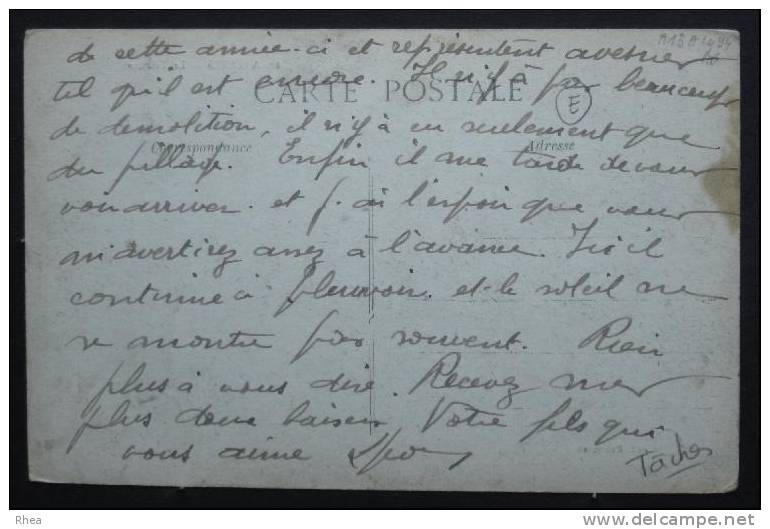 de cette année-ci et représentent avesnes
tel qu'il est encore. Il n'y à pas beaucoup
CARTE POSTALE
E
de demolition, il n'y à eu seulement que
Correspondance
Adresse
du pillage. Enfin il me tarde de vous
voir arriver. et j'ai l'espoir que vous
m'avertirez assez à l'avance. Ici il
continue à pleuvoir. et le soleil ne
se montre pas souvent. Rien
plus à vous dire. Recevez mes
plus doux baisers. Votre fils qui
vous aime
Tâches
Rhea
www.delcampe.net